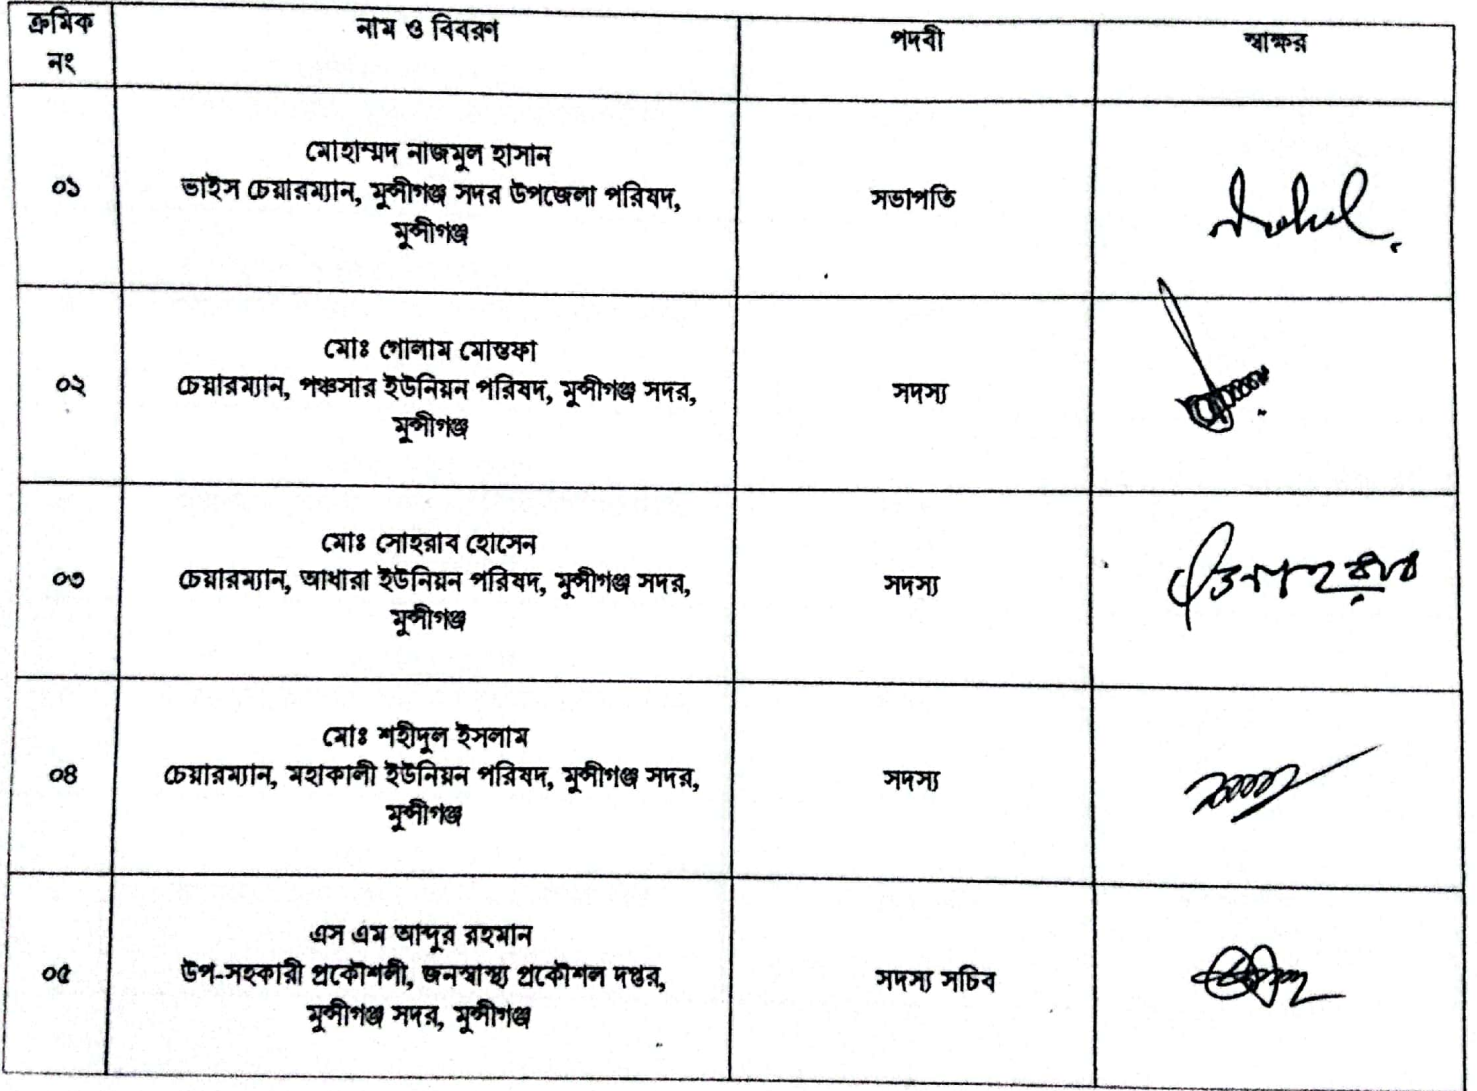 ক্রমিক নং
নাম ও বিবরণ
পদবী
স্বাক্ষর
০১
মোহাম্মদ নাজমুল হাসান
ভাইস চেয়ারম্যান, মুন্সীগঞ্জ সদর উপজেলা পরিষদ,
মুন্সীগঞ্জ
সভাপতি
০২
মোঃ গোলাম মোস্তফা
চেয়ারম্যান, পঞ্চসার ইউনিয়ন পরিষদ, মুন্সীগঞ্জ সদর,
মুন্সীগঞ্জ
সদস্য
০৩
মোঃ সোহরাব হোসেন
চেয়ারম্যান, আধারা ইউনিয়ন পরিষদ, মুন্সীগঞ্জ সদর,
মুন্সীগঞ্জ
সদস্য
০৪
মোঃ শহীদুল ইসলাম
চেয়ারম্যান, মহাকালী ইউনিয়ন পরিষদ, মুন্সীগঞ্জ সদর,
মুন্সীগঞ্জ
সদস্য
০৫
এস এম আব্দুর রহমান
উপ-সহকারী প্রকৌশলী, জনস্বাস্থ্য প্রকৌশল দপ্তর,
মুন্সীগঞ্জ সদর, মুন্সীগঞ্জ
সদস্য সচিব